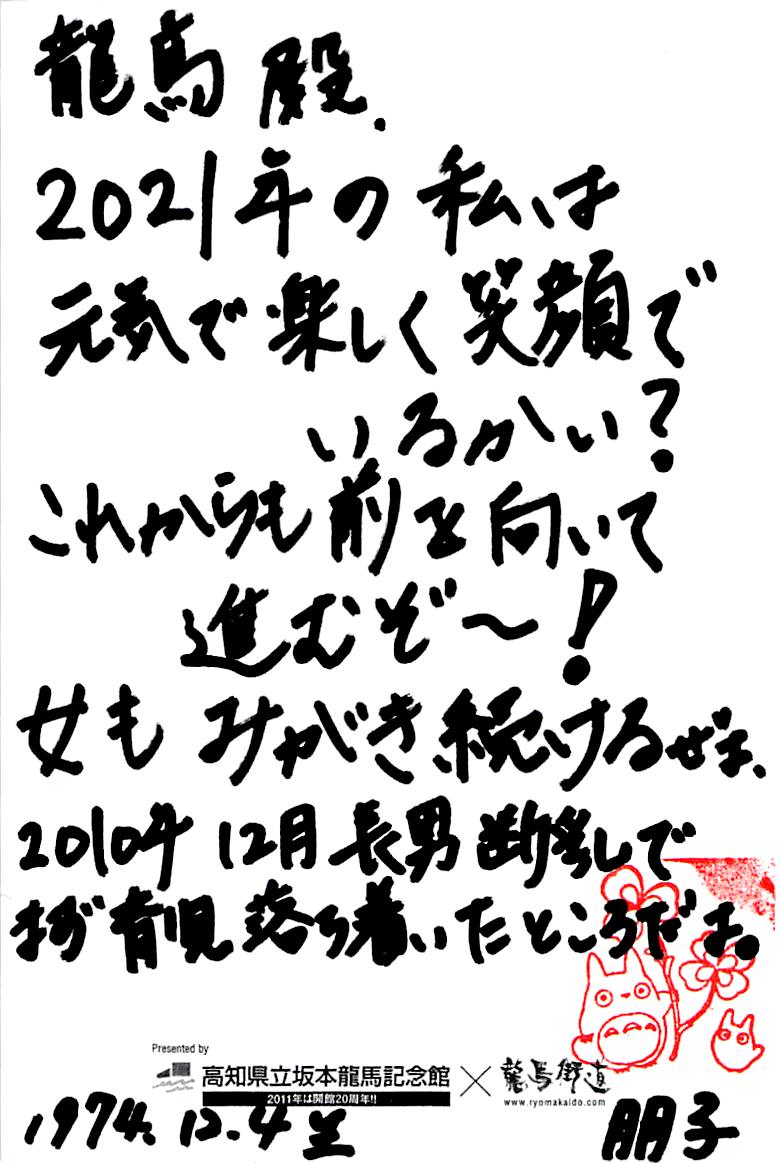 龍馬殿.
2021年の私は
元気で楽しく笑顔で
いるかい?
これからも前を向いて
進むぞ〜!
女もみがき続けるぜよ、
2010年12月長男断乳して
まず育児落ち着いたところだよ。
Presented by
高知県立坂本龍馬記念館 × 龍馬街道
2011年は開館20周年!!
www.ryomakaido.com
1974.12.4生 朋子